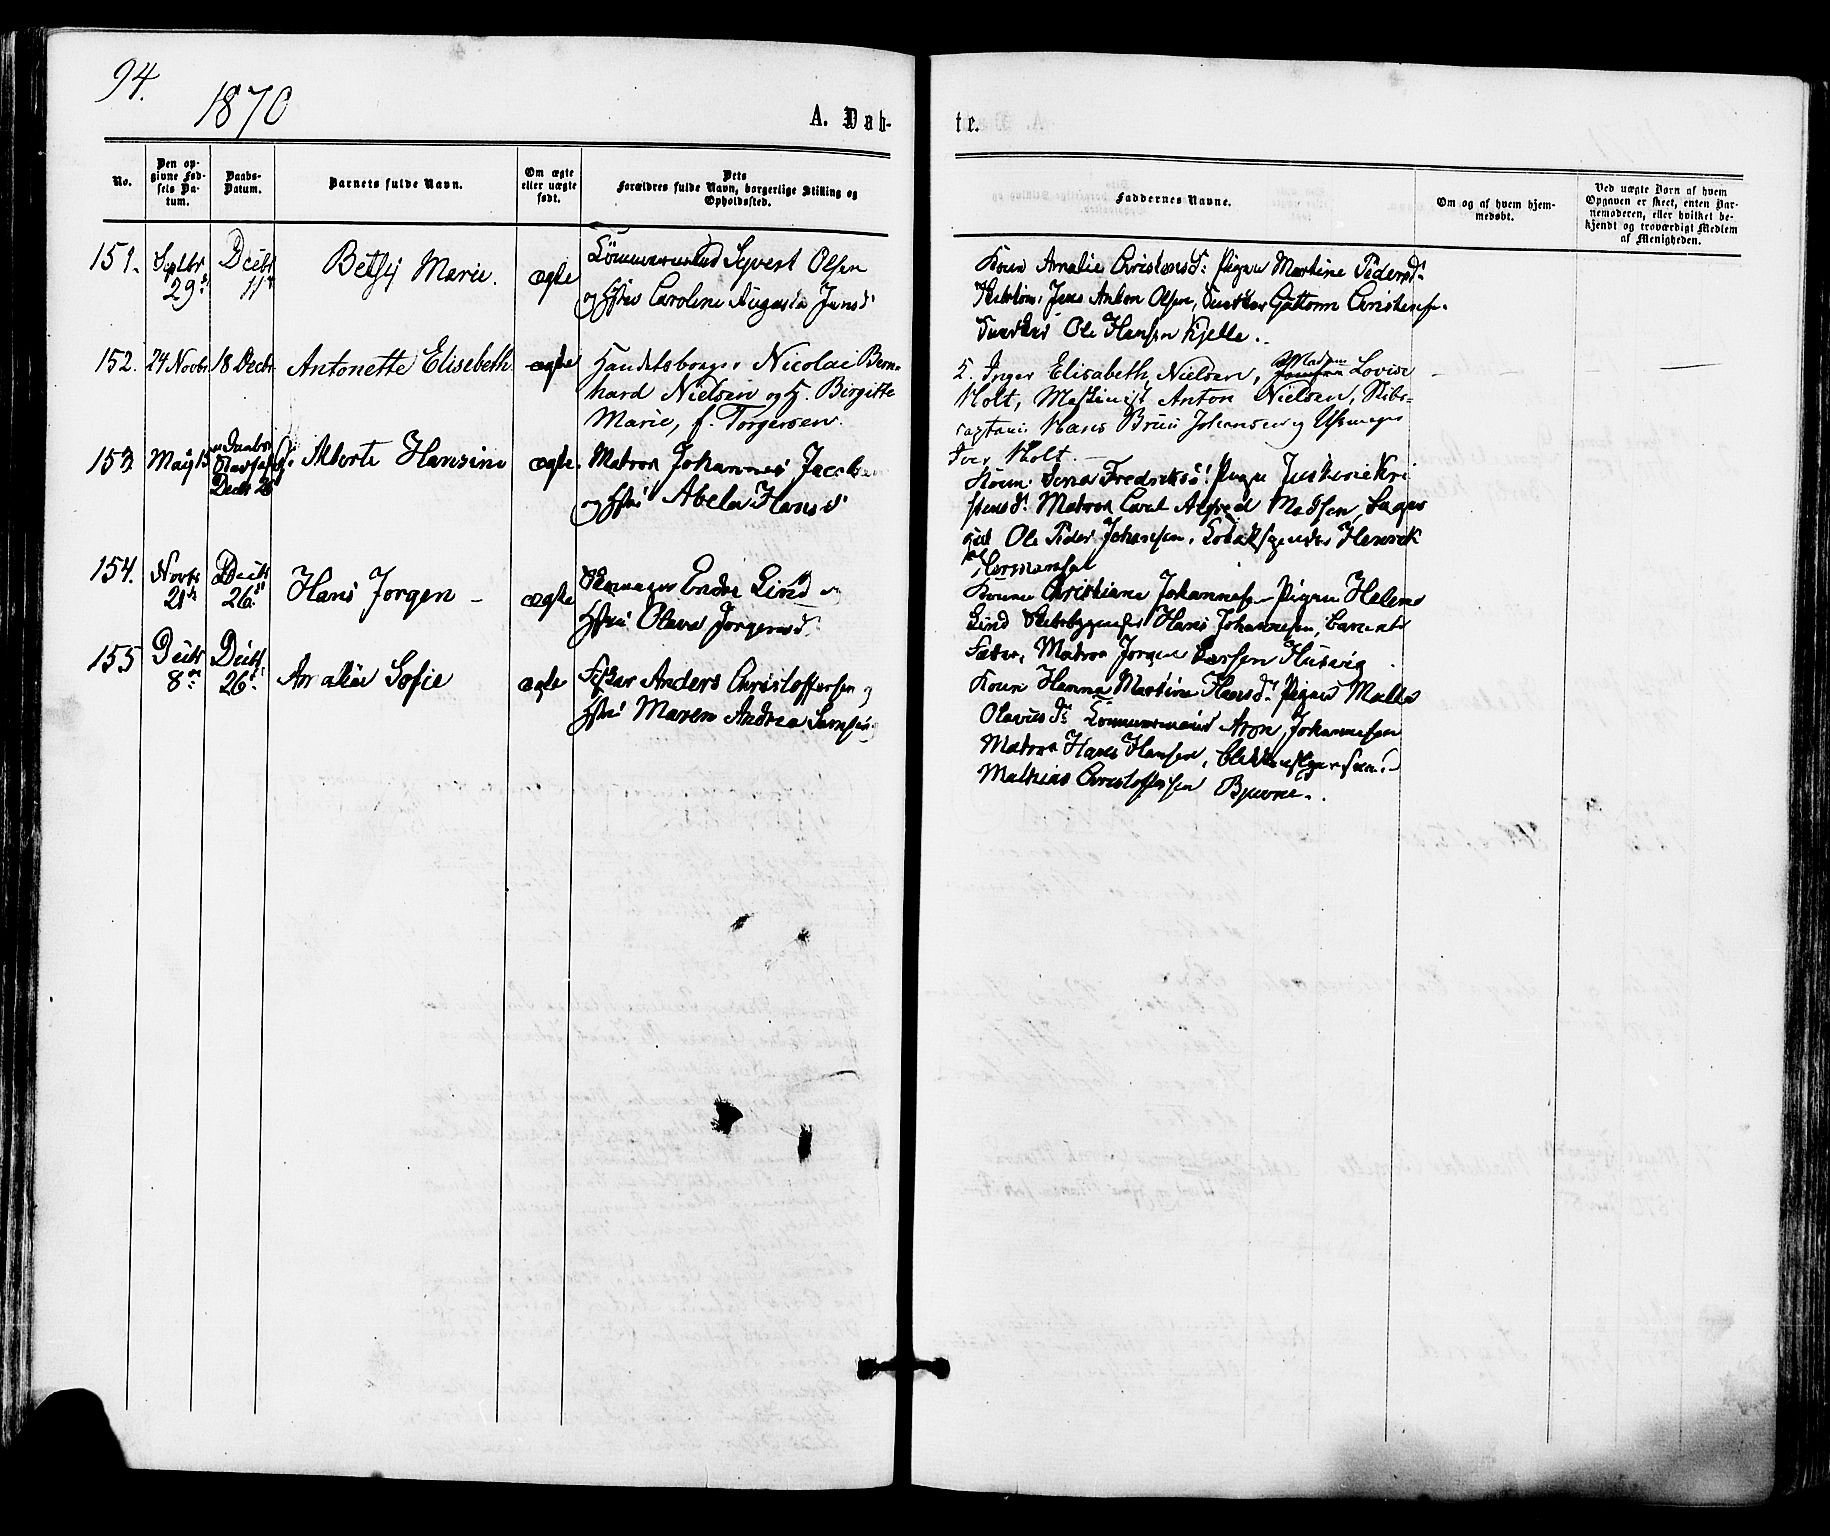 94.
1870
A. Døb-
te.
No.
Den op-
givne Fød-
sels Da-
tum.
Daabs-
Datum.
Barnets fulde Navn.
Om ægte
eller uægte
født.
Dets
Forældres fulde Navn, borgerlige Stilling og
Opholdssted.
Faddernes Navne.
Om og af hvem hjem-
medøbt.
Ved uægte Børn af hvem
Opgaven er skeet, enten Bar-
nemoderen, eller hvilket be-
kjendt og troværdigt Medlem
af Menigheden.
151.
Septbr
29
Decbr
11
Betsy Marie.
ægte
Tømmermand Syvert Olsen
og Hstru Carolene Augusta Jensd
Kone Amalie Christensd: Pigen Martine Pedersd:
Jens Anton Olsen, Guttorm Christensen
Ole Hansen Kjelle.
152.
24 Novbr
18 Decbr
Antonette Elisebeth
ægte
Handelsborger Nicolai Bern-
hard Nielsen og H. Birgitte
Marie, f. Torgersen.
Inger Elisabeth Nielsen, Madam Lovise
Holt, Maskinist Anton Nielsen, Skibs-
captain Hans Bruu Johansen og
Holt.
153
May 15
Decbr 26
Alberte Hansine
ægte.
Matros Johannes Jacobsen
og Hstru Abela Hansd
Kone Fredriksd: Pigen Kri
stensd: Matros Carel Alfred Madsen,
Ole Peder Johansen, Henrik
Hermansen
154.
Novbr
21
Decbr
26
Hans Jorgen
ægte
Endre Lind og
Hstru Olava Jorgensd.
Kone Christiane Johannesen Pigen Helene
Lind Hans Johannesen, Barnets
Fader, Matros Jorgen Larsen
155
Decbr
8
Decbr
26
Amalie Sofie
ægte
Fisker Anders Christoffersen og
Hstru Maren Andrea
Kone Hanna Martine Hansd: Pigen Malla
Olavesd: Tømmermand Aron Johannesen
Matros Hans Hansen,
Mathias Christoffersen Bjerene.